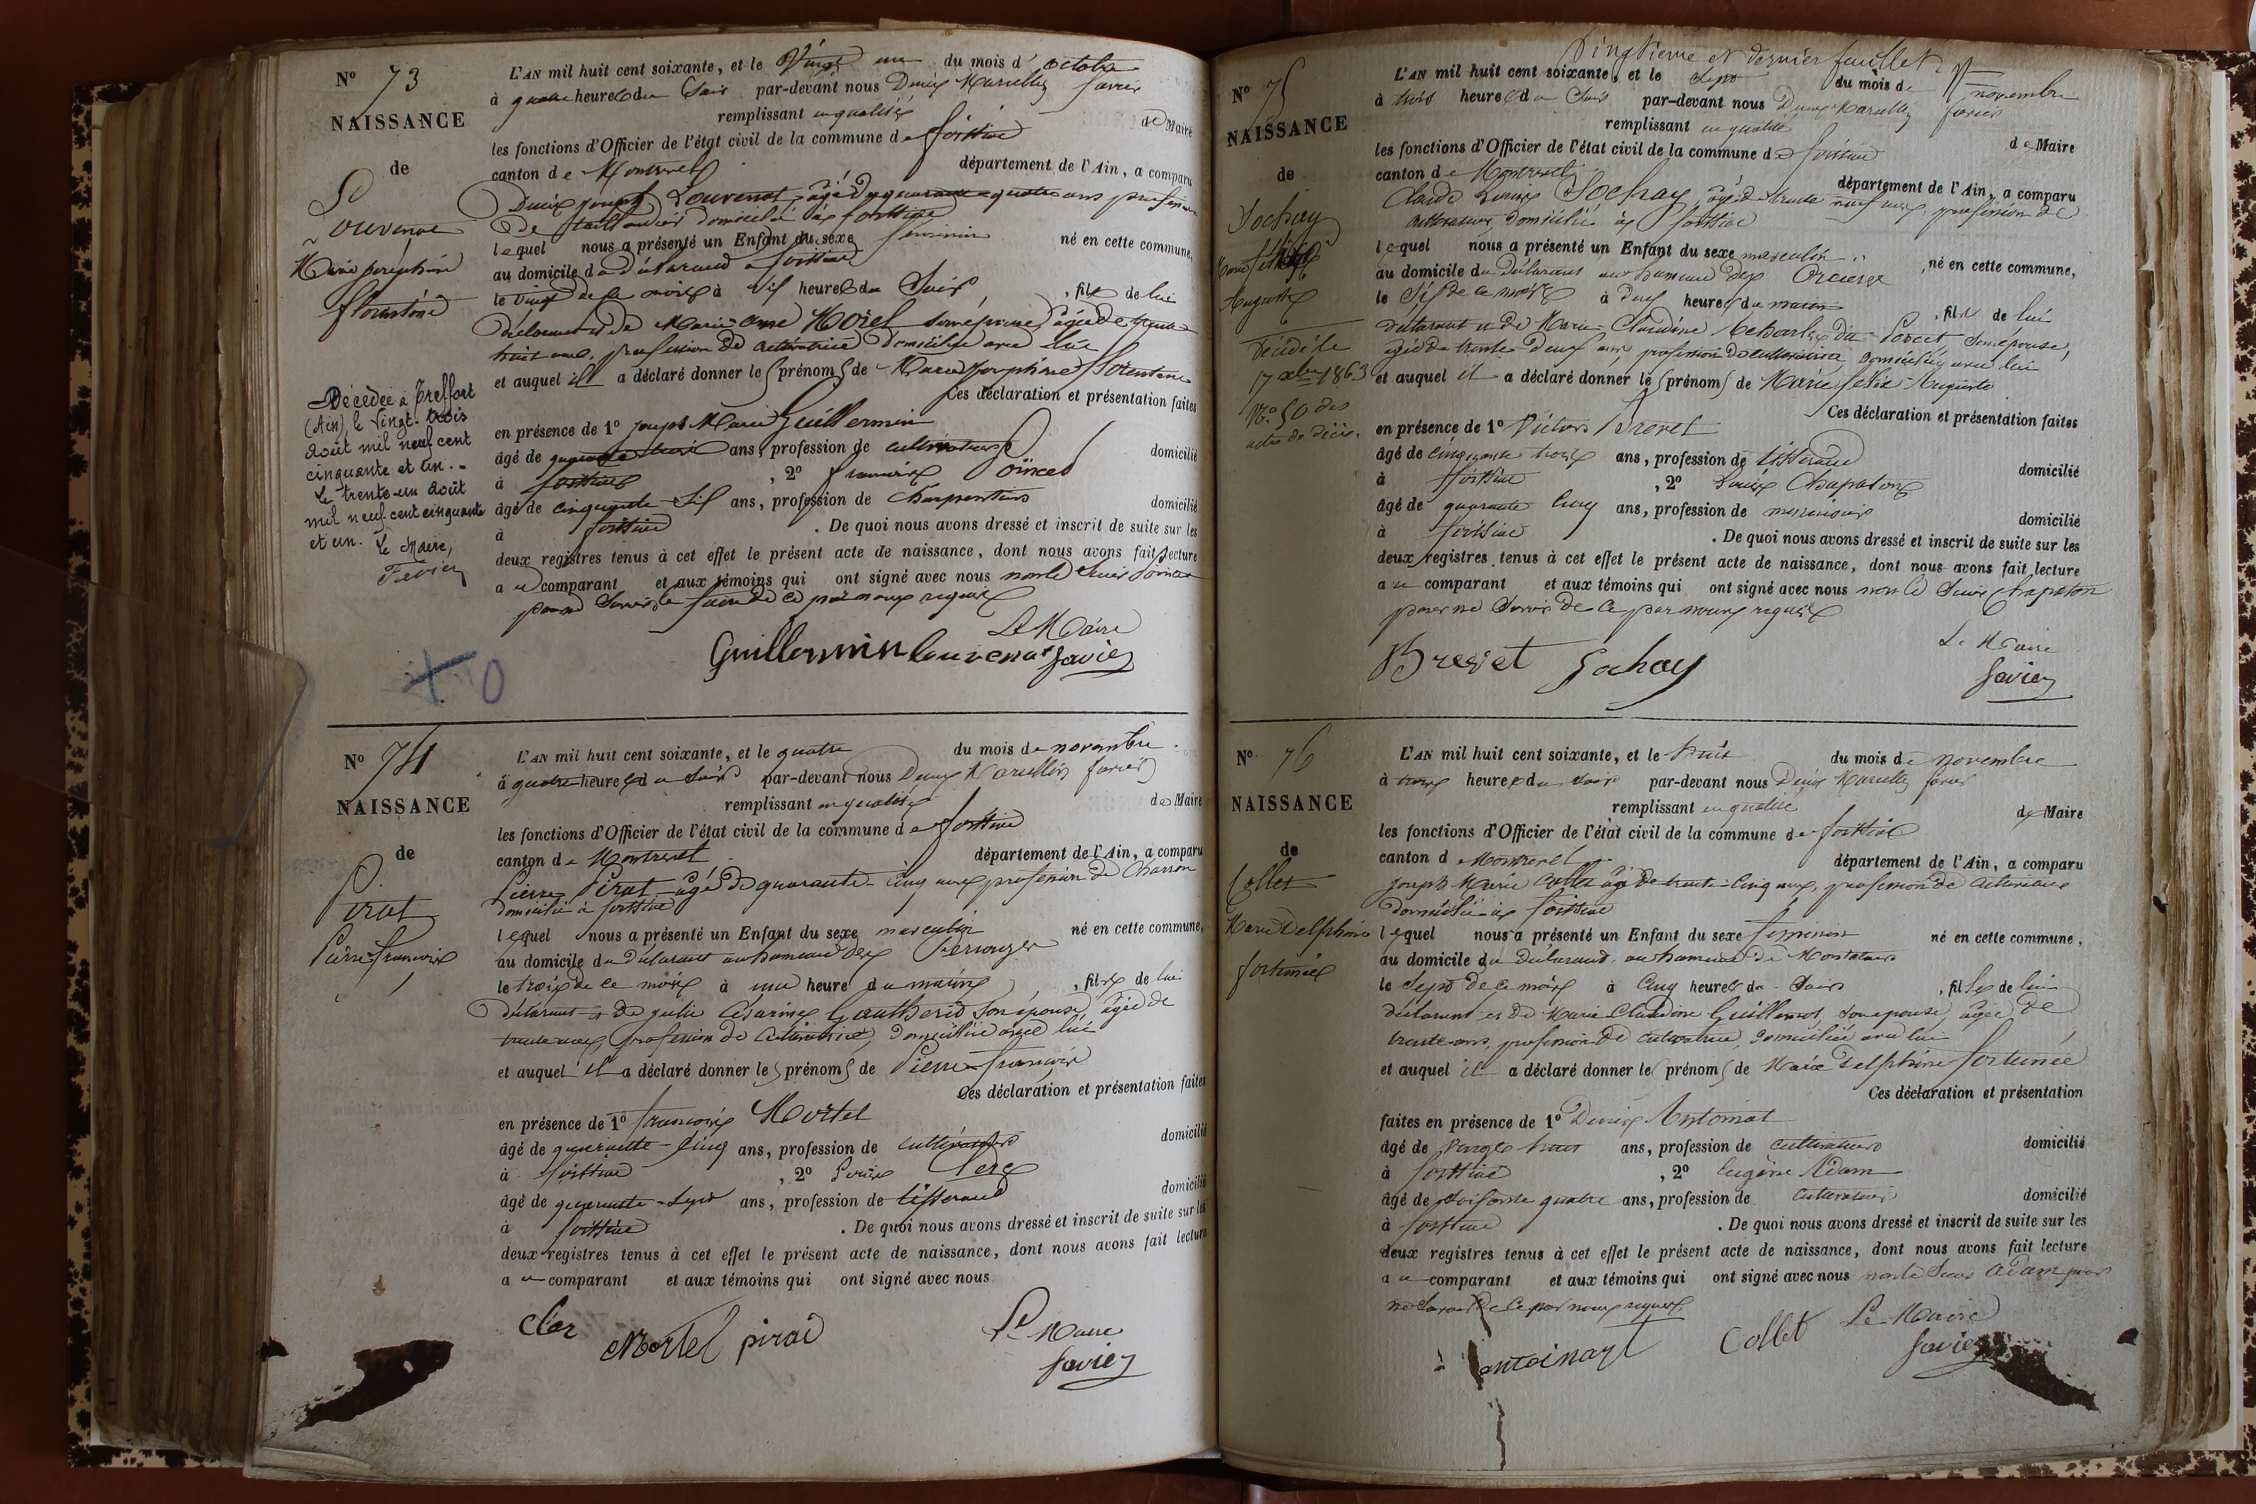 N° 73
NAISSANCE
de
Louvenat
Marie josephine
florentine
Décédée à Treffort
(Ain), le vingt-trois
août mil neuf cent
cinquante et un.-
Le trente-un août
mil neuf cent cinquante
et un. Le Maire,
L'AN mil huit cent soixante, et le Vingt un du mois d'octobre
à quatre heures du Soir par-devant nous Denis Marcellin favier
remplissant en qualité de Maire
les fonctions d'Officier de l'état civil de la commune de foissiat
canton de Montrevel département de l'Ain, a comparu
Denis joseph Louvenat, âgé de quarante quatre ans profession
de taillandier domicilié à foissiat
lequel nous a présenté un Enfant du sexe féminin né en cette commune,
au domicile du déclarant à foissiat
le vingt de ce mois à Six heures du Soir, fille de lui
déclarant et de Marie Morel son épouse, âgée de trente
huit ans, profession de cultivatrice domiciliée avec lui
et auquel il a déclaré donner les prénoms de Marie Josephine Florentine
Ces déclaration et présentation faites
en présence de 1° joseph Marie Guillermin
âgé de quarante trois ans, profession de cultivateur domicilié
à foissiat, 2° francois Poncet
âgé de cinquante-Six ans, profession de charpentier domicilié
à foissiat. De quoi nous avons dressé et inscrit de suite sur les
deux registres tenus à cet effet le présent acte de naissance, dont nous avons fait lecture
au comparant et aux témoins qui ont signé avec nous non le Sieur Poncet
pour ne Savoir le faire de ce par nous requis
Le Maire
Guillermin Louvenat favier
+ 0
N° 74
NAISSANCE
de
Pirat
Pierre francois
L'AN mil huit cent soixante, et le quatre du mois de novembre.
à quatre heures du Soir par-devant nous Denis Marcellin favier
remplissant en qualité de Maire
les fonctions d'Officier de l'état civil de la commune de foissiat
canton de Montrevel département de l'Ain, a comparu
Pierre Pirat âgé de quarante-cinq ans profession de Charron
domicilié à foissiat
lequel nous a présenté un Enfant du sexe masculin né en cette commune,
au domicile du déclarant au hameau des
le trois de ce mois à une heure du matin, fils de lui
déclarant et de julie Césarine Gautheret Son épouse, âgée de
trente ans, profession de cultivatrice, domiciliée avec lui
et auquel il a déclaré donner les prénoms de Pierre francois
Ces déclaration et présentation faites
en présence de 1° francois Mortel
âgé de quarante-Cinq ans, profession de cultivateur domicilié
à foissiat, 2° Louis Clerc
âgé de quarante-Sept ans, profession de tisserand domicilié
à foissiat. De quoi nous avons dressé et inscrit de suite sur les
deux registres tenus à cet effet le présent acte de naissance, dont nous avons fait lecture
au comparant et aux témoins qui ont signé avec nous
Cler Mortel pirat Le Maire
favier
Vingtième et dernier feuillet
N° 75
NAISSANCE
de
Sochay
Marie felix
Auguste
Décédé le
17 xbre 1863
N° 50 des
actes de décès.
L'AN mil huit cent soixante, et le Sept du mois de novembre
à trois heures du Soir par-devant nous Denis Marcellin favier
remplissant en qualité de Maire
les fonctions d'Officier de l'état civil de la commune de foissiat
canton de Montrevel département de l'Ain, a comparu
Claude Louis Sochay, âgé de trente neuf ans, profession de
cultivateur, domicilié à foissiat
lequel nous a présenté un Enfant du sexe masculin né en cette commune,
au domicile du déclarant au hameau des
le Six de ce mois à deux heures du matin, fils de lui
déclarant et de Marie Claudine dit Poncet Son épouse,
agée de trente deux ans profession de cultivatrice domiciliée avec lui
et auquel il a déclaré donner les prénoms de Marie felix-Auguste
Ces déclaration et présentation faites
en présence de 1° Victor Brevet
âgé de cinquante trois ans, profession de tisserand domicilié
à foissiat, 2° Louis Chapaton
âgé de quarante Cinq ans, profession de menuisier domicilié
à foissiat. De quoi nous avons dressé et inscrit de suite sur les
deux registres tenus à cet effet le présent acte de naissance, dont nous avons fait lecture
au comparant et aux témoins qui ont signé avec nous non le Sieur Chapaton
pour ne Savoir de ce par nous requis
Brevet Sochay Le Maire
favier
N° 76
NAISSANCE
de
Collet
Marie Delphine
fortunée
L'AN mil huit cent soixante, et le huit du mois de novembre
à trois heures du Soir par-devant nous Denis Marcellin favier
remplissant en qualité de Maire
les fonctions d'Officier de l'état civil de la commune de foissiat
canton de Montrevel département de l'Ain, a comparu
joseph Marie Collet âgé de trente-Cinq ans, profession de cultivateur
domicilié à foissiat
lequel nous a présenté un Enfant du sexe féminin né en cette commune,
au domicile du déclarant, au hameau de
le Sept de ce mois à Cinq heures du Soir, fille de lui
déclarant et de Marie Claudine Guillemot, Son épouse âgée de
trente ans, profession de cultivatrice, domiciliée avec lui
et auquel il a déclaré donner les prénoms de Marie Delphine fortunée
Ces déclaration et présentation
faites en présence de 1° Denis Antoinat
âgé de vingt huit ans, profession de cultivateur domicilié
à foissiat, 2° Eugène Adam
âgé de Soixante quatre ans, profession de cultivateur domicilié
à foissiat. De quoi nous avons dressé et inscrit de suite sur les
deux registres tenus à cet effet le présent acte de naissance, dont nous avons fait lecture
au comparant et aux témoins qui ont signé avec nous non le Sieur Adam pour
ne Savoir de ce par nous requis.
antoinat Collet Le Maire
favier